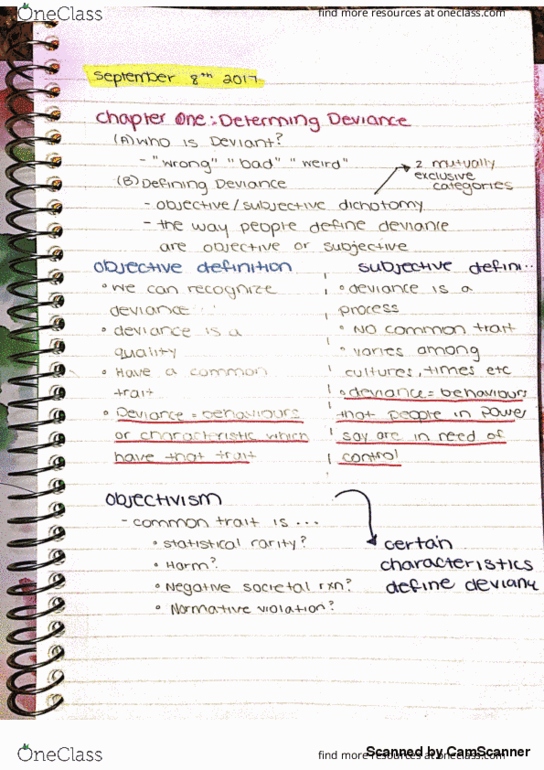 OneClass
find more resources at oneclass.com
September 8th 2017
Chapter One: Determing Deviance
(A) Who is Deviant?
- "wrong" "bad" "weird"
2 mutually
exclusive
categories
(B) Defining Deviance
- objective/subjective dichotomy
- the way people define deviance
are objective or subjective
objective definition
• We can recognize
deviance
• deviance is a
quality
• Have a common
trait
• Deviance = behaviours
or characteristic which
have that trait
subjective defini..
• deviance is a
process
• NO common trait
• varies among
cultures, times etc
• deviance = behaviours
that people in power
say are in need of
control
objectivism
- common trait is ...
• statistical rarity?
• Harm?
• Negative societal rxn?
• Normative violation?
certain
characteristics
define devianc
OneClass
find more resources at oneclass.com
Scanned by CamScanner